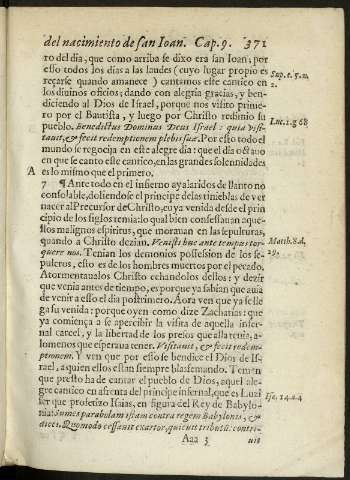 del nacimiento de san Ioan. Cap. 9. 371
ro del dia, que como arriba se dixo era san Ioan; por
esso todos los dias a las laudes (cuyo lugar propio es
reçarse quando amanece) cantamos este cantico en
los diuinos oficios; dando con alegria gracias, y ben-
diciendo al Dios de Israel, porque nos visito prime-
ro por el Bautista, y luego por Christo redimio su
pueblo. Benedictus Dominus Deus Israel: quia visi-
tauit, & fecit redemptionem plebis suæ. Por esso todo el
mundo se regocija en este alegre dia: que el dia octauo
en que se canto este cantico, en las grandes solennidades
es lo mismo que el primero.
7 ¶ Ante todo en el infierno ay alaridos de llanto no
consolable, doliendose el principe de las tinieblas de ver
nacer al Precursor de Christo, cuya venida desde el prin-
cipio de los siglos temia: lo qual bien confessauan aque-
llos malignos espiritus, que morauan en las sepulturas,
quando a Christo dezian. Venisti huc ante tempus tor-
quere nos. Tenian los demonios possession de los se-
pulcros, esto es de los hombres muertos por el pecado.
Atormentaualos Christo echandolos dellos: y dezir
que venia antes de tiempo, es porque ya sabian que auia
de venir a esso el dia postrimero. Aora ven que ya se lle
ga su venida: porque oyen como dize Zacharias: que
ya comiença a se apercibir la visita de aquella infer-
nal carcel, y la libertad de los presos que alla tenia, a-
lomenos que esperaua tener. Visitauit, & fecit redem-
ptionem. Y ven que por esso se bendice el Dios de Is-
rael, a quien ellos estan siempre blasfemando. Temen
que presto ha de cantar el pueblo de Dios, aquel ale-
gre cantico en afrenta del principe infernal, que es Luzi
fer que profetizo Isaias, en figura del Rey de Babylo-
nia: Sumes parabolam istam contra regem Babylonis, &
dices. Quomodo cessauit exactor, quieuit tributum: contri-
Aaa 3 uit
A
Luc. 1. g 68
Matth. 8. d.
29.